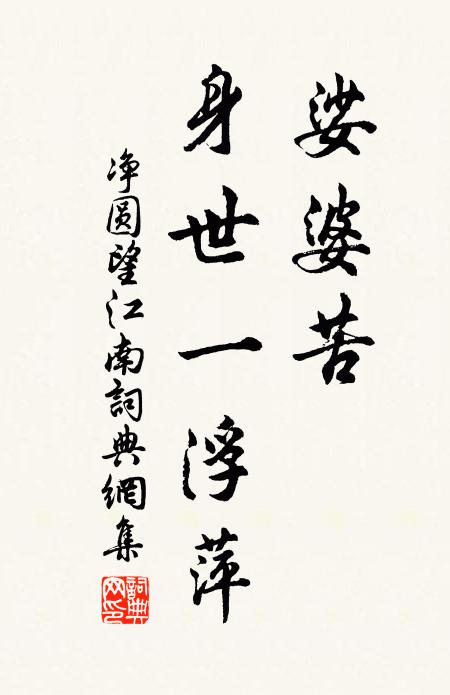 娑婆苦
身世一浮萍
净圆望江南詞典網集
詞典网印